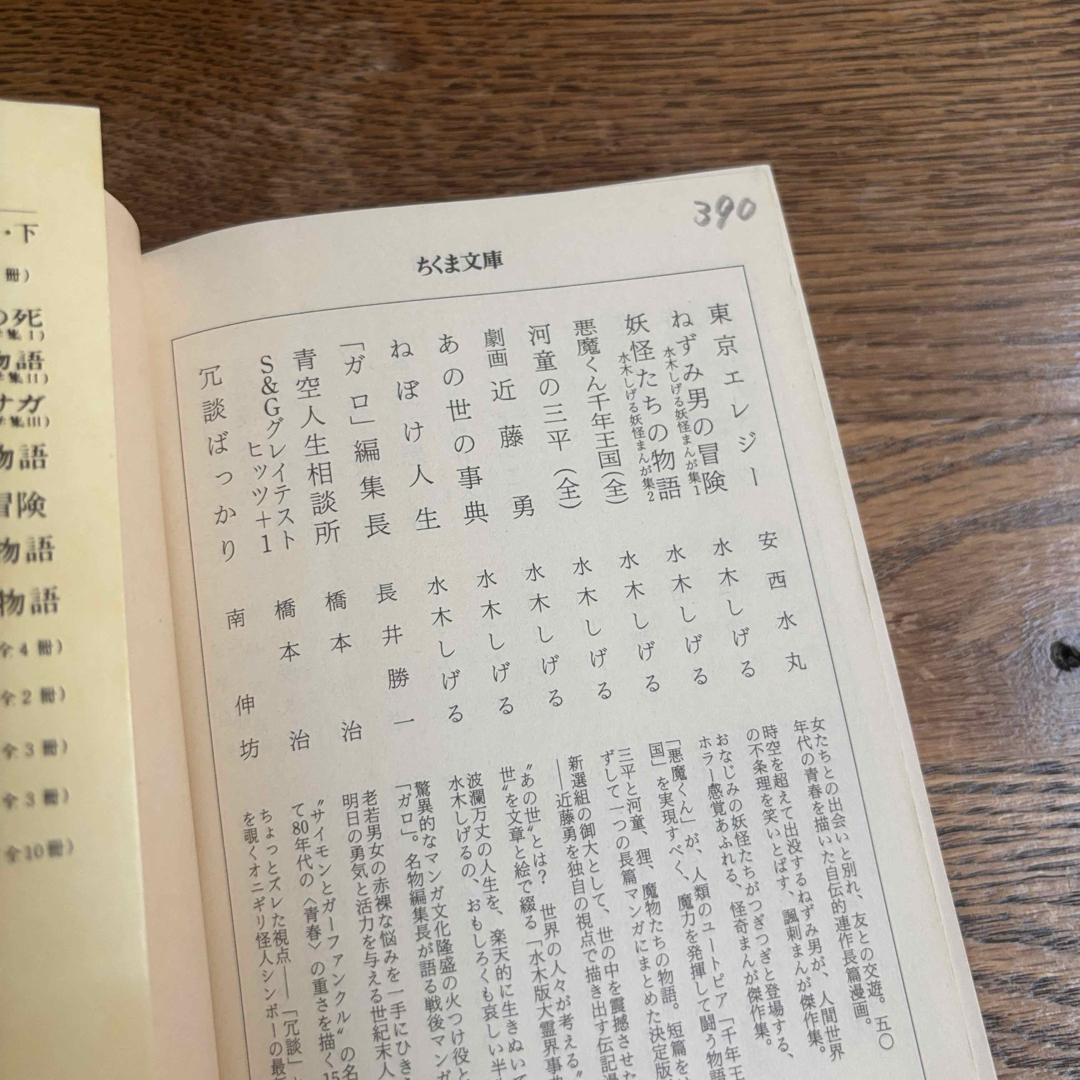 390
ちくま文庫
東京エレジー 安西水丸
女たちとの出会いと別れ、友との交遊。五〇
年代の青春を描いた自伝的連作長篇漫画。
ねずみ男の冒険 水木しげる
水木しげる妖怪まんが集1
時空を超えて出没するねずみ男が、人間世界
の不条理を笑いとばす、諷刺まんが傑作集。
妖怪たちの物語 水木しげる
水木しげる妖怪まんが集2
おなじみの妖怪たちがつぎつぎと登場する、
ホラー感覚あふれる、怪奇まんが傑作集。
悪魔くん千年王国(全) 水木しげる
「悪魔くん」が、人類のユートピア「千年王
国」を実現すべく、魔力を発揮して闘う物語
河童の三平(全) 水木しげる
三平と河童、狸、魔物たちの物語。短篇を
ずして一つの長篇マンガにまとめた決定版
劇画近藤勇 水木しげる
新選組の御大として、世の中を震撼させた
――近藤勇を独自の視点で描き出す伝記漫
あの世の事典 水木しげる
"あの世"とは? 世界の人々が考える
世"を文章と絵で綴る「水木版大霊界事典
ねぼけ人生 水木しげる
波瀾万丈の人生を、楽天的に生きぬいて
水木しげるの、おもしろくも哀しい半
「ガロ」編集長 長井勝一
驚異的なマンガ文化隆盛の火つけ役と
「ガロ」。名物編集長が語る戦後マンガ
青空人生相談所 橋本治
老若男女の赤裸な悩みを一手にひき
明日の勇気と活力を与える世紀末人
S&Gグレイテスト
ヒッツ+1 橋本治
"サイモンとガーファンクル"の名
て80年代の〈青春〉の重さを描く15
冗談ばっかり 南伸坊
ちょっとズレた視点――「冗談」
を覗くオニギリ怪人シンボーの最
・下
冊)
の死
集I)
物語
集II)
サガ
集III)
物語
冒険
物語
物語
全4冊)
全2冊)
全3冊)
全3冊)
全10冊)